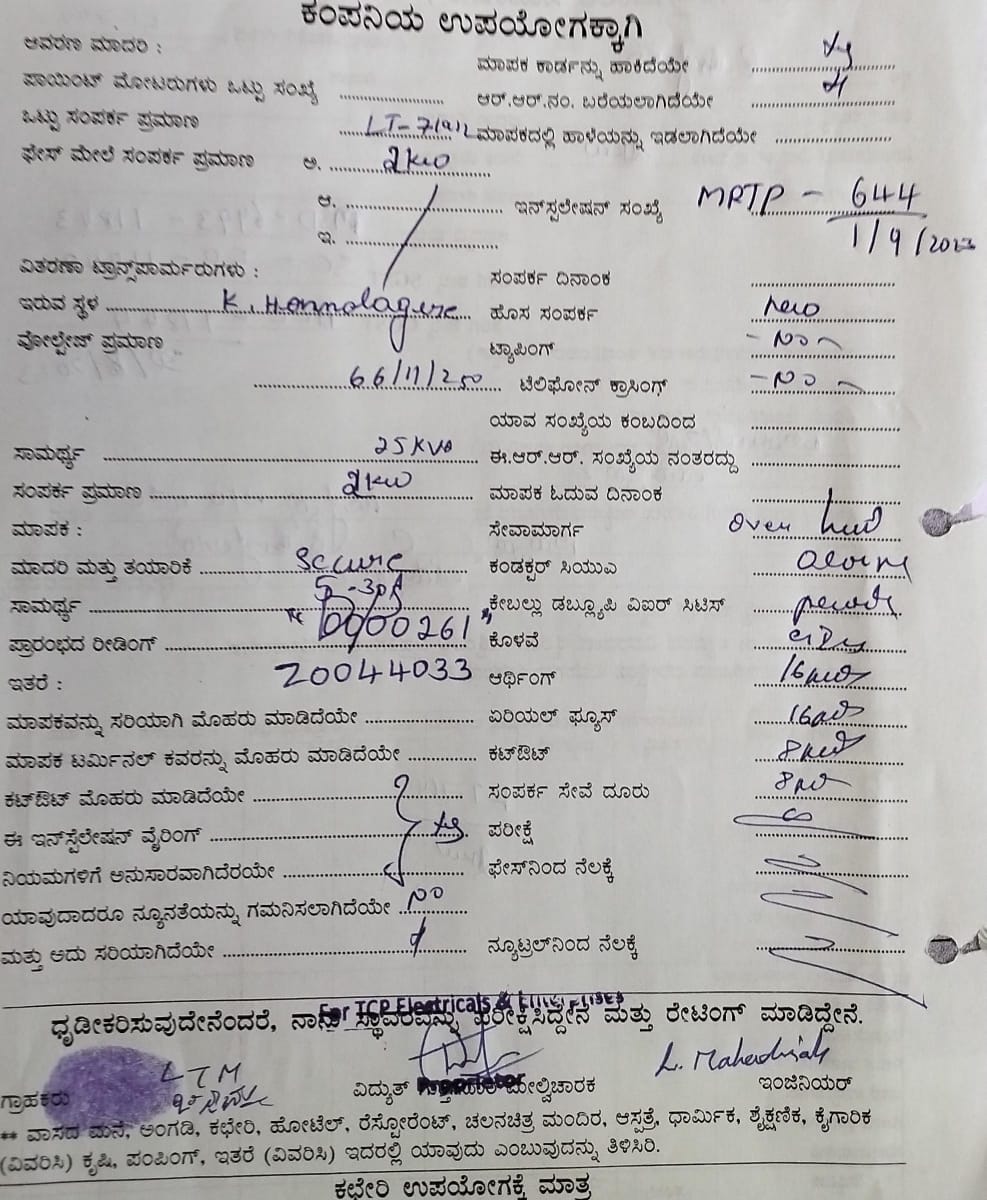 ಕಂಪನಿಯ ಉಪಯೋಗಕ್ಕಾಗಿ
ಆವರಣ ಮಾದರಿ :
ಮಾಪಕ ಕಾರ್ಡನ್ನು ಹಾಕಿದೆಯೇ
ಪಾಯಿಂಟ್ ಮೋಟರುಗಳು ಒಟ್ಟು ಸಂಖ್ಯೆ
ಆರ್.ಆರ್.ನಂ. ಬರೆಯಲಾಗಿದೆಯೇ
ಒಟ್ಟು ಸಂಪರ್ಕ ಪ್ರಮಾಣ
ಮಾಪಕದಲ್ಲಿ ಹಾಳೆಯನ್ನು ಇಡಲಾಗಿದೆಯೇ
ಫೇಸ್ ಮೇಲೆ ಸಂಪರ್ಕ ಪ್ರಮಾಣ ಅ. 2kw
ಆ.
ಇನ್‌ಸ್ಟಲೇಷನ್ ಸಂಖ್ಯೆ MRTP - 644
1/9/2023
ಇ.
ವಿತರಣಾ ಟ್ರಾನ್ಸ್‌ಪಾರ್ಮರುಗಳು :
ಸಂಪರ್ಕ ದಿನಾಂಕ
ಇರುವ ಸ್ಥಳ K. Honnolagere
ಹೊಸ ಸಂಪರ್ಕ new
ವೋಲ್ಟೇಜ್ ಪ್ರಮಾಣ
ಟ್ಯಾಪಿಂಗ್ - no -
66/11/250
ಟೆಲಿಫೋನ್ ಕ್ರಾಸಿಂಗ್ - no -
ಯಾವ ಸಂಖ್ಯೆಯ ಕಂಬದಿಂದ
ಸಾಮರ್ಥ್ಯ 25 KVA
ಈ.ಆರ್.ಆರ್. ಸಂಖ್ಯೆಯ ನಂತರದ್ದು
ಸಂಪರ್ಕ ಪ್ರಮಾಣ 2kw
ಮಾಪಕ ಓದುವ ದಿನಾಂಕ
ಮಾಪಕ :
ಸೇವಾಮಾರ್ಗ over
ಮಾದರಿ ಮತ್ತು ತಯಾರಿಕೆ Secure
ಕಂಡಕ್ಟರ್ ಸಿಯುಎ
ಸಾಮರ್ಥ್ಯ 5-30A
ಕೇಬಲ್ಲು ಡಬ್ಲ್ಯೂಪಿ ವಿಐರ್ ಸಿಟಿಸ್
ಪ್ರಾರಂಭದ ರೀಡಿಂಗ್ 0000261
ಕೊಳವೆ
ಇತರೆ : 20044033
ಆರ್ಥಿಂಗ್
ಮಾಪಕವನ್ನು ಸರಿಯಾಗಿ ಮೊಹರು ಮಾಡಿದೆಯೇ
ಏರಿಯಲ್ ಫ್ಯೂಸ್
ಮಾಪಕ ಟರ್ಮಿನಲ್ ಕವರನ್ನು ಮೊಹರು ಮಾಡಿದೆಯೇ
ಕಟ್‌ಔಟ್
ಕಟ್‌ಔಟ್ ಮೊಹರು ಮಾಡಿದೆಯೇ
ಸಂಪರ್ಕ ಸೇವೆ ದೂರು
ಈ ಇನ್‌ಸ್ಟೆಲೇಷನ್ ವೈರಿಂಗ್
ಪರೀಕ್ಷೆ
ನಿಯಮಗಳಿಗೆ ಅನುಸಾರವಾಗಿದೆರಯೇ
ಫೇಸ್‌ನಿಂದ ನೆಲಕ್ಕೆ
ಯಾವುದಾದರೂ ನ್ಯೂನತೆಯನ್ನು ಗಮನಿಸಲಾಗಿದೆಯೇ no
ಮತ್ತು ಅದು ಸರಿಯಾಗಿದೆಯೇ
ನ್ಯೂಟ್ರಲ್‌ನಿಂದ ನೆಲಕ್ಕೆ
For TCP Electricals &
ಧೃಡೀಕರಿಸುವುದೇನೆಂದರೆ, ನಾನು ಸ್ಥಾವರವನ್ನು ಪರೀಕ್ಷಿಸಿದ್ದೇನೆ ಮತ್ತು ರೇಟಿಂಗ್ ಮಾಡಿದ್ದೇನೆ.
LTM
ಗ್ರಾಹಕರು
ವಿದ್ಯುತ್ ಮೇಲ್ವಿಚಾರಕ
Proprietor
ಇಂಜಿನಿಯರ್
** ವಾಸದ ಮನೆ, ಅಂಗಡಿ, ಕಛೇರಿ, ಹೋಟೆಲ್, ರೆಸ್ಟೋರೆಂಟ್, ಚಲನಚಿತ್ರ ಮಂದಿರ, ಆಸ್ಪತ್ರೆ, ಧಾರ್ಮಿಕ, ಶೈಕ್ಷಣಿಕ, ಕೈಗಾರಿಕ
(ವಿವರಿಸಿ) ಕೃಷಿ, ಪಂಪಿಂಗ್, ಇತರೆ (ವಿವರಿಸಿ) ಇದರಲ್ಲಿ ಯಾವುದು ಎಂಬುವುದನ್ನು ತಿಳಿಸಿರಿ.
ಕಛೇರಿ ಉಪಯೋಗಕ್ಕೆ ಮಾತ್ರ